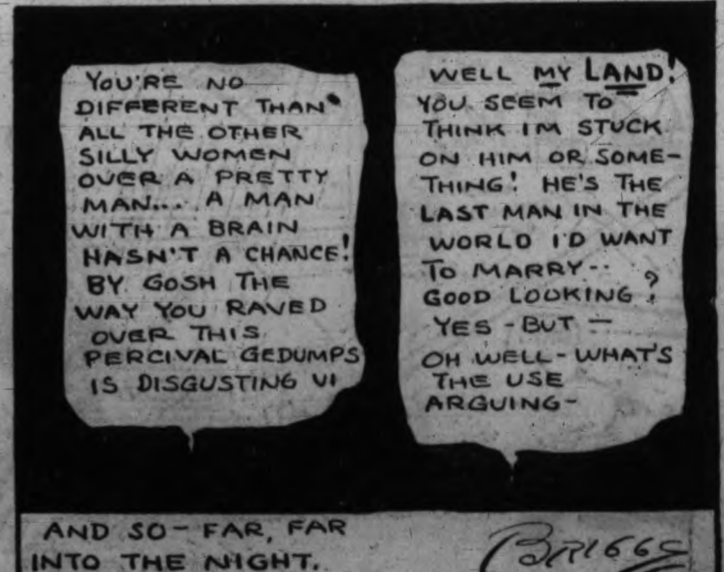 YOU'RE NO
DIFFERENT THAN
ALL THE OTHER
SILLY WOMEN
OVER A PRETTY
MAN... A MAN
WITH A BRAIN
HASN'T A CHANCE!
BY GOSH THE
WAY YOU RAVED
OVER THIS
PERCIVAL GEDUMPS
IS DISGUSTING VI
WELL MY LAND!
YOU SEEM TO
THINK IM STUCK
ON HIM OR SOME-
THING! HE'S THE
LAST MAN IN THE
WORLD I'D WANT
TO MARRY--
GOOD LOOKING?
YES - BUT -
OH WELL - WHAT'S
THE USE
ARGUING -
AND SO - FAR, FAR
INTO THE NIGHT.
BRIGGS